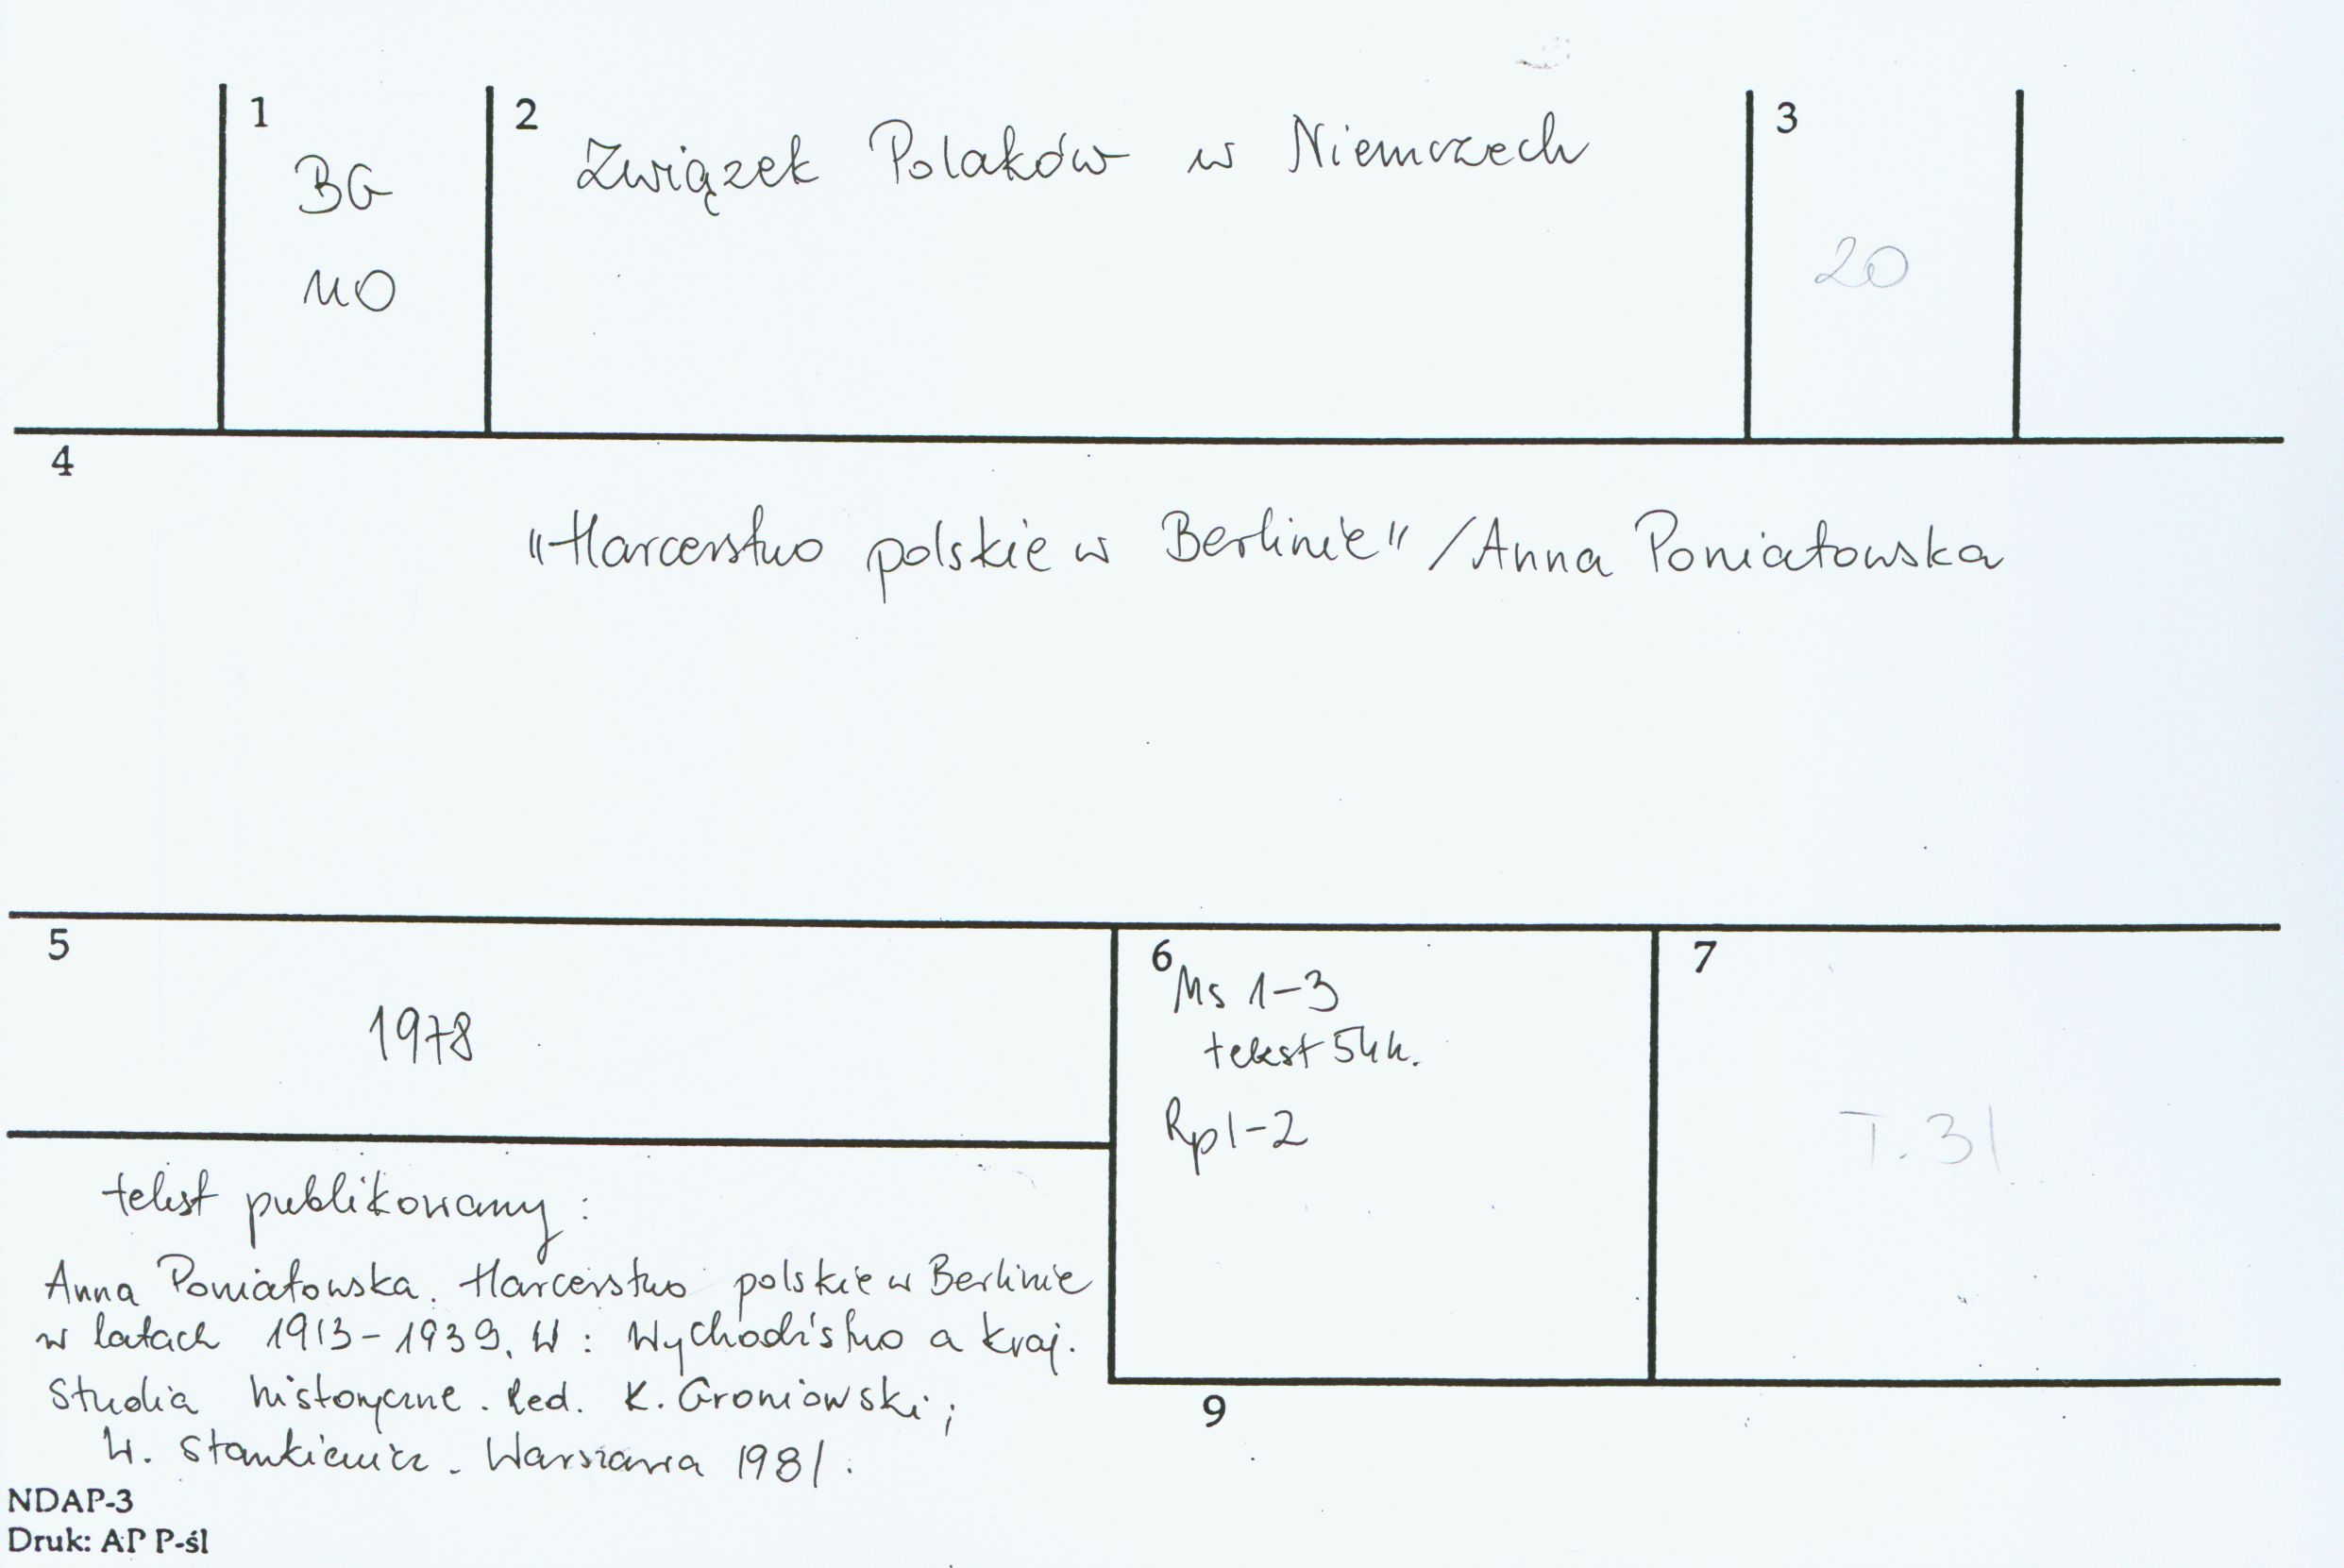 1
BG
MO
2
Związek Polaków w Niemczech
3
20
4
„Harcerstwo polskie w Berlinie" /Anna Poniatowska
5
1978
6
Ms 1-3
tekst 54 k.
Rp 1-2
7
T. 31
tekst publikowany:
Anna Poniatowska. Harcerstwo polskie w Berlinie
w latach 1913-1939. W: Wychodźstwo a kraj.
Studia historyczne. Red. K. Groniowski;
W. Stankiewicz. Warszawa 1981.
9
NDAP-3
Druk: AP P-śl